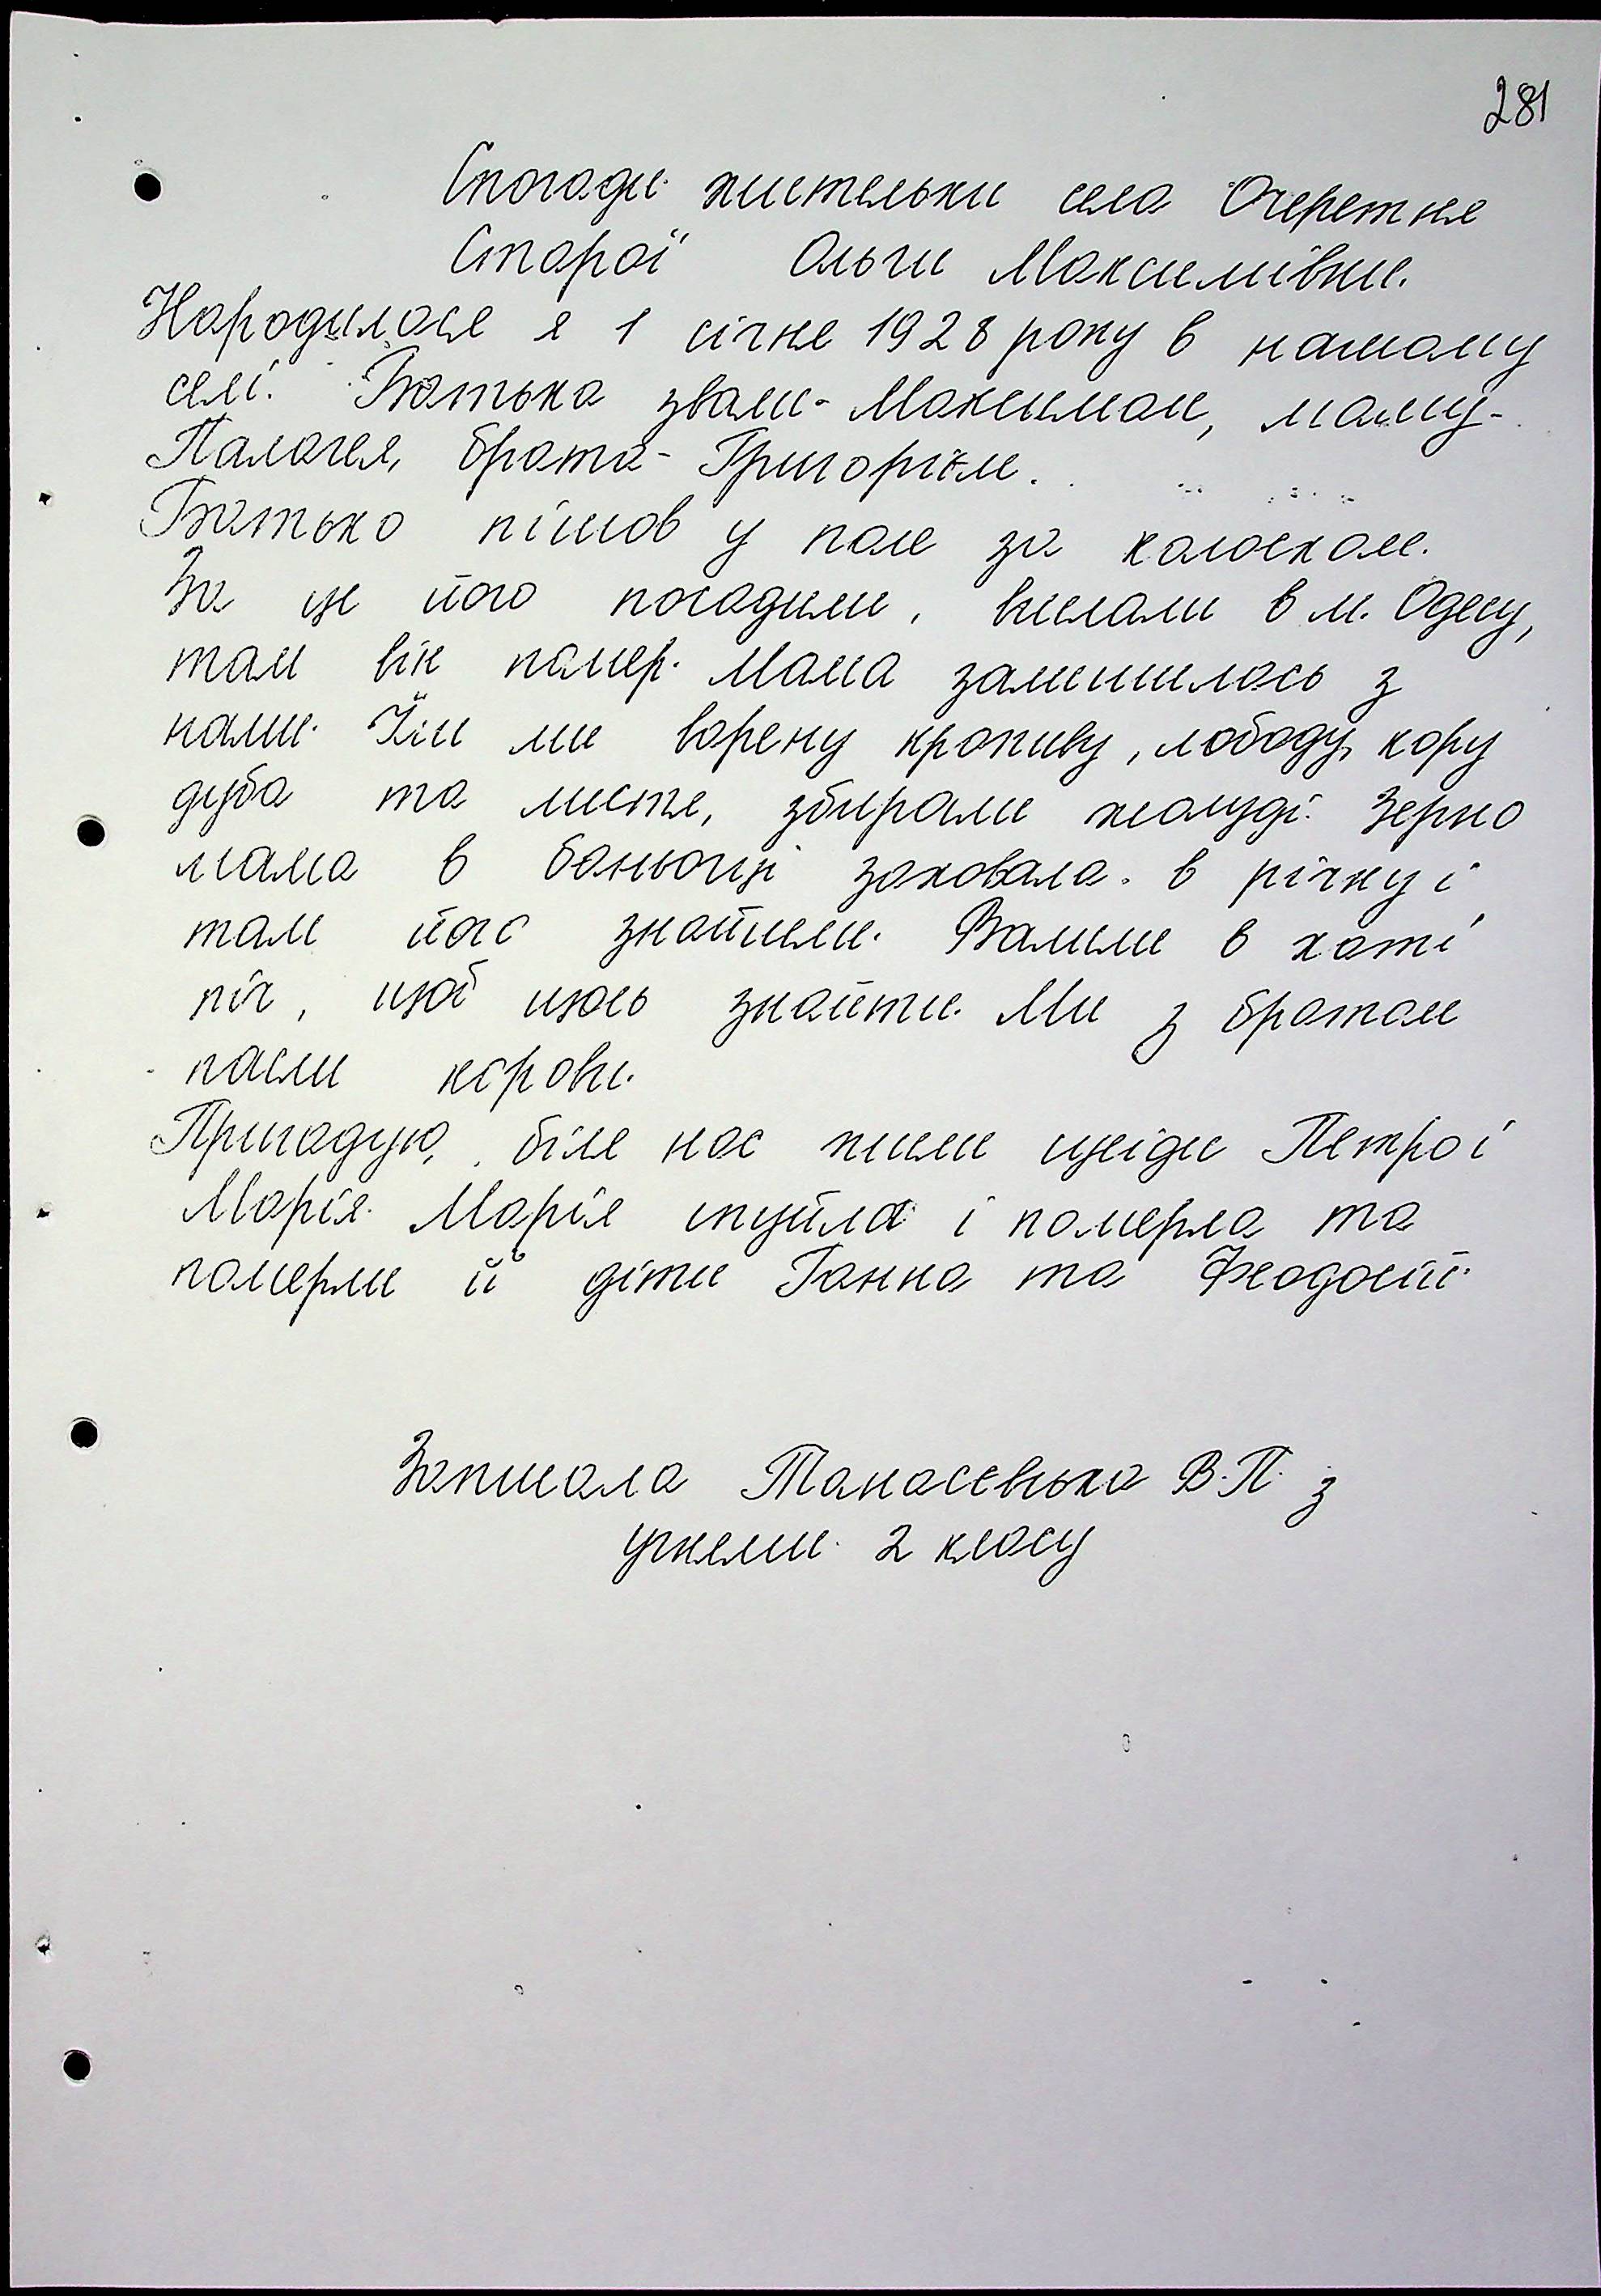 281
Спогади жительки села Очеретня
Старої Ольги Максимівни.
Народилася я 1 січня 1928 року в нашому
селі. Батька звали - Максимом, маму -
Палагея, брата - Григорієм.
Батько пішов у поле за колоском.
За це його посадили, вислали в м. Одесу,
там він помер. Мама залишилась з
нами. Їли ми варену кропиву, лободу, кору
дуба та листя, збирали жолуді. Зерно
мама в баньочці заховала в річку і
там його знайшли. Валили в хаті
піч, щоб щось знайти. Ми з братом
пасли корови.
Пригадую, біля нас жили сусіди Петро і
Марія. Марія опухла і померла та
померли її діти Ганна та Феодосій.
Записала Танасевська В.П. з
учнями 2 класу